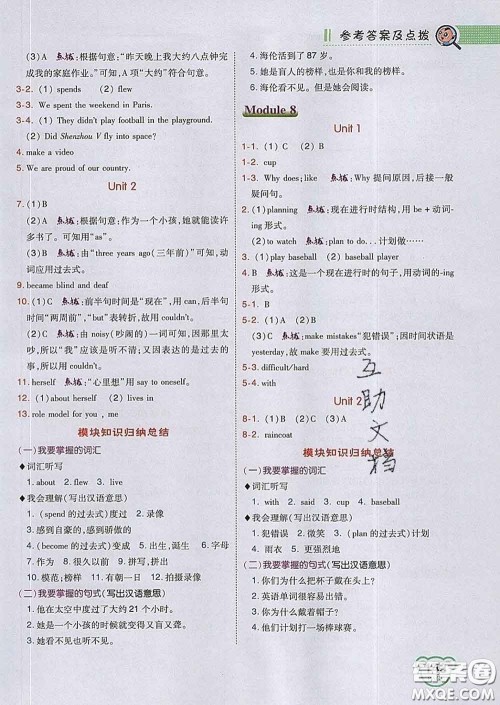 参考答案及点拨
(3) A 点拨：根据句意：“昨天晚上我大约八点钟完
成我的家庭作业。”A 项“大约”符合句意。
3-2. (1) spends (2) flew
3-3. We spent the weekend in Paris.
3-4. (1) They didn't play football in the playground.
(2) Did Shenzhou V fly into space?
4. make a video
5. We are proud of our country.
Unit 2
7. (1) B
(2) A 点拨：根据句意：作为一个小孩，她就能读许
多书了。可知用“as”。
(3) B 点拨：由“three years ago(三年前)”可知，动
词应用过去式。
9. became blind and deaf
10. (1) C 点拨：前半句时间是“现在”，用 can,后半句
时间“两周前”，“but”表转折，故用 couldn't.
(2) B 点拨：由 noisy(吵闹的)一词可知，因那里太
吵，所以“我”应该是听不清；又因为是过去式，所以
用 couldn't.
11. herself 点拨：“心里想”用 say to oneself.
12. (1) about herself (2) lives in
13. role model for you, me
模块知识归纳总结
(一)我要掌握的词汇
◆词汇听写
1. about 2. flew 3. live
◆我会理解(写出汉语意思)
1. (spend 的过去式)度过 2. 录像
3. 感到自豪的，感到骄傲的
4. (become 的过去式)变成 5. 出生，诞生 6. 字母
7. 作为 8. 很久以前 9. 拼写，拼出
10. 模范；榜样 11. 有朝一日 12. 拍摄录像
(二)我要掌握的句式(写出汉语意思)
1. 他在太空中度过了大约 21 个小时。
2. 她是一个小孩的时候就变得又盲又聋。
3. 她看不见也听不到。
4. 海伦活到了 87 岁。
5. 她是盲人的榜样，也是你我的榜样。
6. 海伦看不见。但是她会阅读。
Module 8
Unit 1
1-1. (1) C (2) B
1-2. cup
3. Why does; like 点拨：Why 提问原因，后接一般
疑问句。
3. (1) planning 点拨：现在进行时结构，用 be + 动词-
ing 形式。
(2) to watch 点拨：plan to do…计划做……
3-1. (1) play baseball (2) baseball player
4. B 点拨：这是一个现在进行时的句子，用动词的-ing
形式。
5-1. B
5-2. (1) A 点拨：make mistakes“犯错误”；因时间状语是
yesterday, 故 make 要用过去式。
5-3. difficult/hard
5-4. B
5-5. with
Unit 2
8-1. (1) A (2) C
8-2. raincoat
模块知识归纳总结
(一)我要掌握的词汇
◆词汇听写
1. with 2. said 3. cup 4. baseball
◆我会理解(写出汉语意思)
1. 犯错误 2. 微笑 3. (plan 的过去式)计划
4. 雨衣 5. 更强烈地
(二)我要掌握的句式(写出汉语意思)
1. 你为什么把杯子戴在头上？
2. 英语单词很容易出错。
3. 你为什么戴着帽子？
4. 他们计划打一场棒球赛。
互助文档
答案圈
MXQE.COM